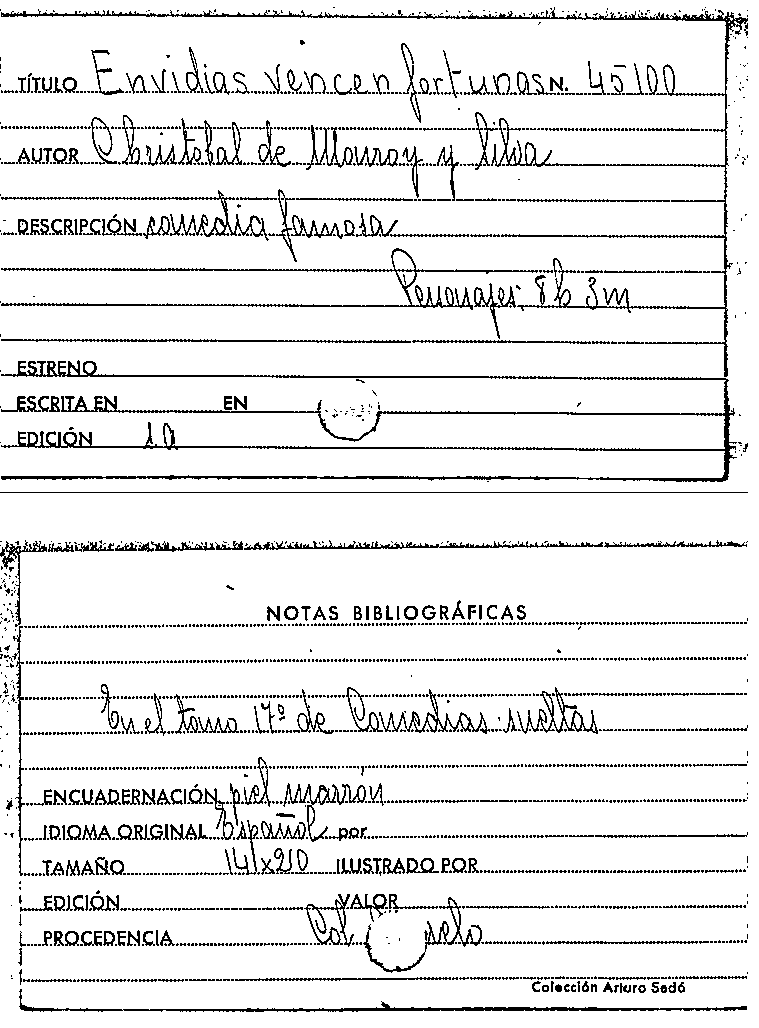 TÍTULO Envidias vencen fortunas N. 45100
AUTOR Christobal de Monroy y Silva
DESCRIPCIÓN comedia famosa
Personajes: 8h 3m
ESTRENO
ESCRITA EN EN
EDICIÓN 1a
NOTAS BIBLIOGRÁFICAS
En el tomo 17º de Comedias sueltas
ENCUADERNACIÓN piel marrón
IDIOMA ORIGINAL Español por
TAMAÑO 141x210 ILUSTRADO POR
EDICIÓN VALOR
PROCEDENCIA Col
Colección Arturo Sedó